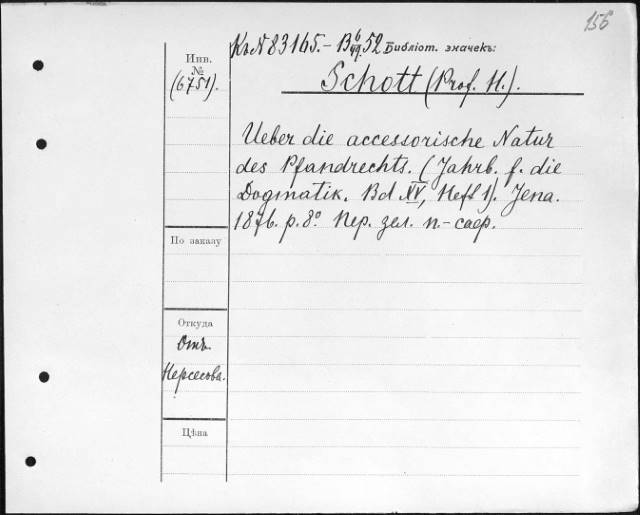 156
Къ № 83165. - В 6/VII. 52 Библіот. значекъ:
Инв. № (6751).
Schott (Prof. H.).
Ueber die accessorische Natur
des Pfandrechts. (Jahrb. f. die
Dogmatik. Bd. XV, Heft 1). Jena.
1876. p. 8° Пер. зел. п.-сафр.
По заказу
Откуда
Отъ
Нерсесова.
Цѣна